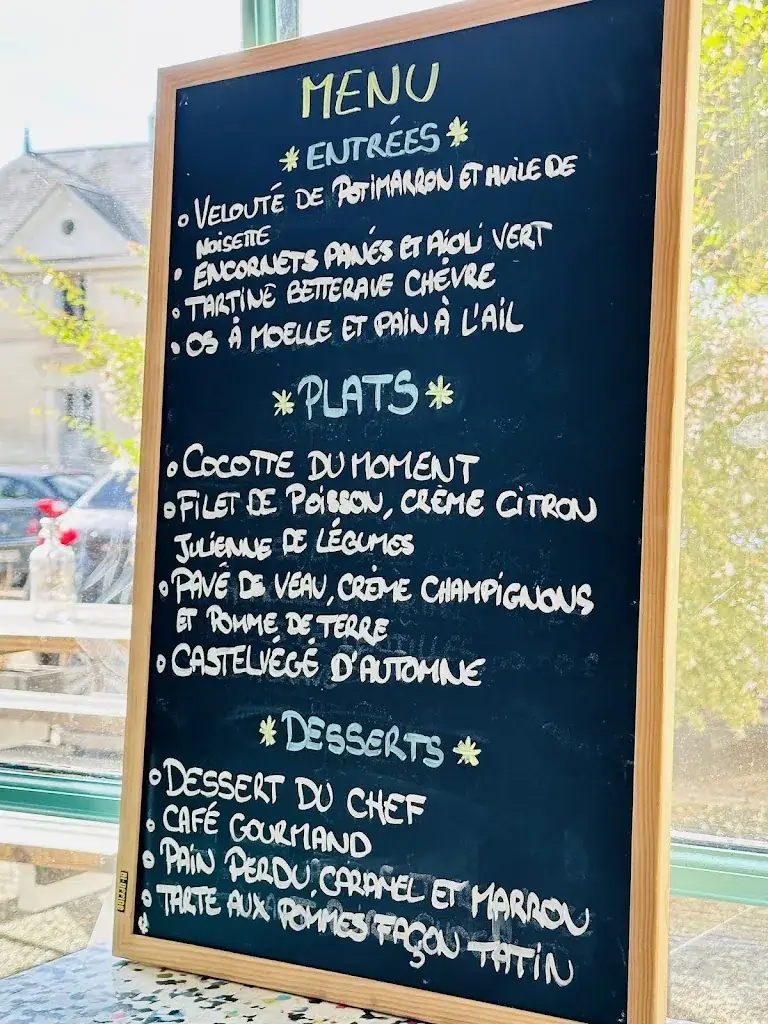 MENU
ENTRÉES
VELOUTÉ DE POTIMARRON ET HUILE DE
NOISETTE
ENCORNETS PANÉS ET AÏOLI VERT
TARTINE BETTERAVE CHÈVRE
OS À MOELLE ET PAIN À L'AIL
PLATS
COCOTTE DU MOMENT
FILET DE POISSON, CRÈME CITRON
JULIENNE DE LÉGUMES
PAVÉ DE VEAU, CRÈME CHAMPIGNONS
ET POMME DE TERRE
CASTELVÉGÉ D'AUTOMNE
DESSERTS
DESSERT DU CHEF
CAFÉ GOURMAND
PAIN PERDU, CARAMEL ET MARRON
TARTE AUX POMMES FAÇON TATIN